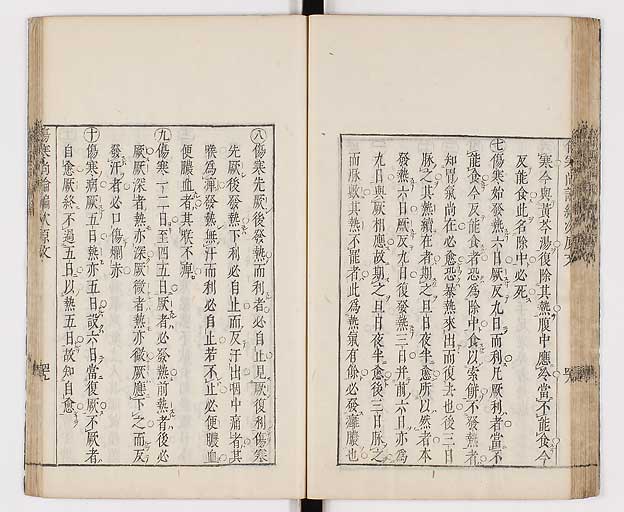 寒今與黃芩湯復除其熱腹中應冷當不能食今
反能食此名除中必死
七傷寒始發熱六日厥反九日而利凡厥利者當不
能食今反能食者恐為除中食以索餅不發熱者
知胃氣尚在必愈恐暴熱來出而復去也後三日
脉之其熱續在者期之旦日夜半愈所以然者本
發熱六日厥反九日復發熱三日并前六日亦為
九日與厥相應故期之旦日夜半愈後三日脉之
而脉數其熱不罷者此為熱氣有餘必發癰膿也
八傷寒先厥後發熱而利者必自止見厥復利傷寒
先厥後發熱下利必自止而反汗出咽中痛者其
喉為痺發熱無汗而利必自止若不止必便膿血
便膿血者其喉不痺
九傷寒一二日至四五日厥者必發熱前熱者後必
厥厥深者熱亦深厥微者熱亦微厥應下之而反
發汗者必口傷爛赤
十傷寒病厥五日熱亦五日設六日當復厥不厥者
自愈厥終不過五日以熱五日故知自愈
傷寒尚論編次原文